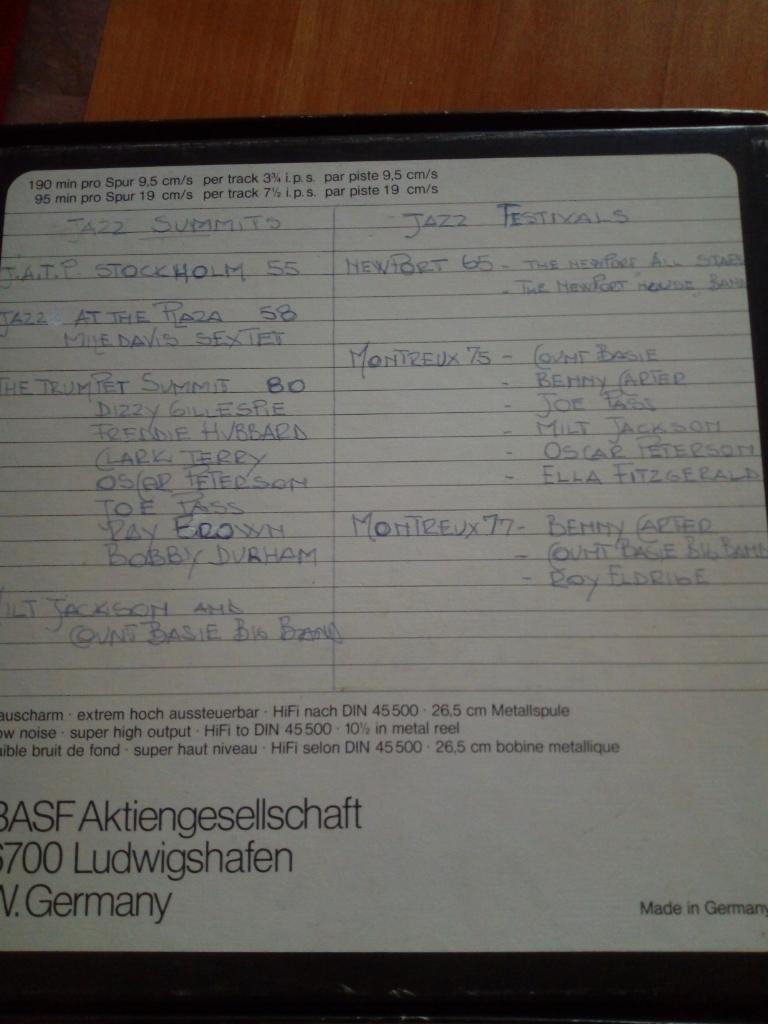 190 min pro Spur 9,5 cm/s per track 3¾ i.p.s. par piste 9,5 cm/s
95 min pro Spur 19 cm/s per track 7½ i.p.s. par piste 19 cm/s
JAZZ SUMMITS
J.A.T.P. STOCKHOLM 55
JAZZ AT THE PLAZA 58
MILE DAVIS SEXTET
THE TRUMPET SUMMIT 80
DIZZY GILLESPIE
FREDDIE HUBBARD
CLARK TERRY
OSCAR PETERSON
JOE PASS
RAY BROWN
BOBBY DURHAM
MILT JACKSON AND
COUNT BASIE BIG BAND
JAZZ FESTIVALS
NEWPORT 65 - THE NEWPORT ALL STARS
- THE NEWPORT HOUSE BAND
MONTREUX 75 - COUNT BASIE
- BENNY CARTER
- JOE PASS
- MILT JACKSON
- OSCAR PETERSON
- ELLA FITZGERALD
MONTREUX 77 - BENNY CARTER
- COUNT BASIE BIG BAND
- ROY ELDRIGE
auscharm · extrem hoch aussteuerbar · HiFi nach DIN 45500 · 26,5 cm Metallspule
ow noise · super high output · HiFi to DIN 45500 · 10½ in metal reel
aible bruit de fond · super haut niveau · HiFi selon DIN 45500 · 26,5 cm bobine metallique
BASF Aktiengesellschaft
6700 Ludwigshafen
W. Germany
Made in Germany